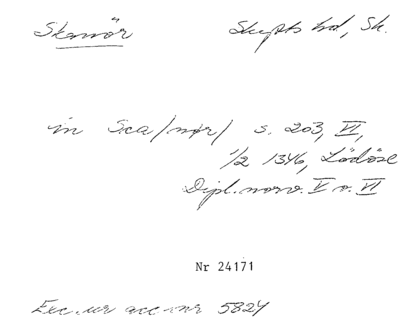 Skanör Skytts hd, Sk.
in Sca/nør/ s. 203, VI,
1/2 1346, Lödöse
Dipl. norv. V o. VI
Nr 24171
Exc. ur acc. nr 5824